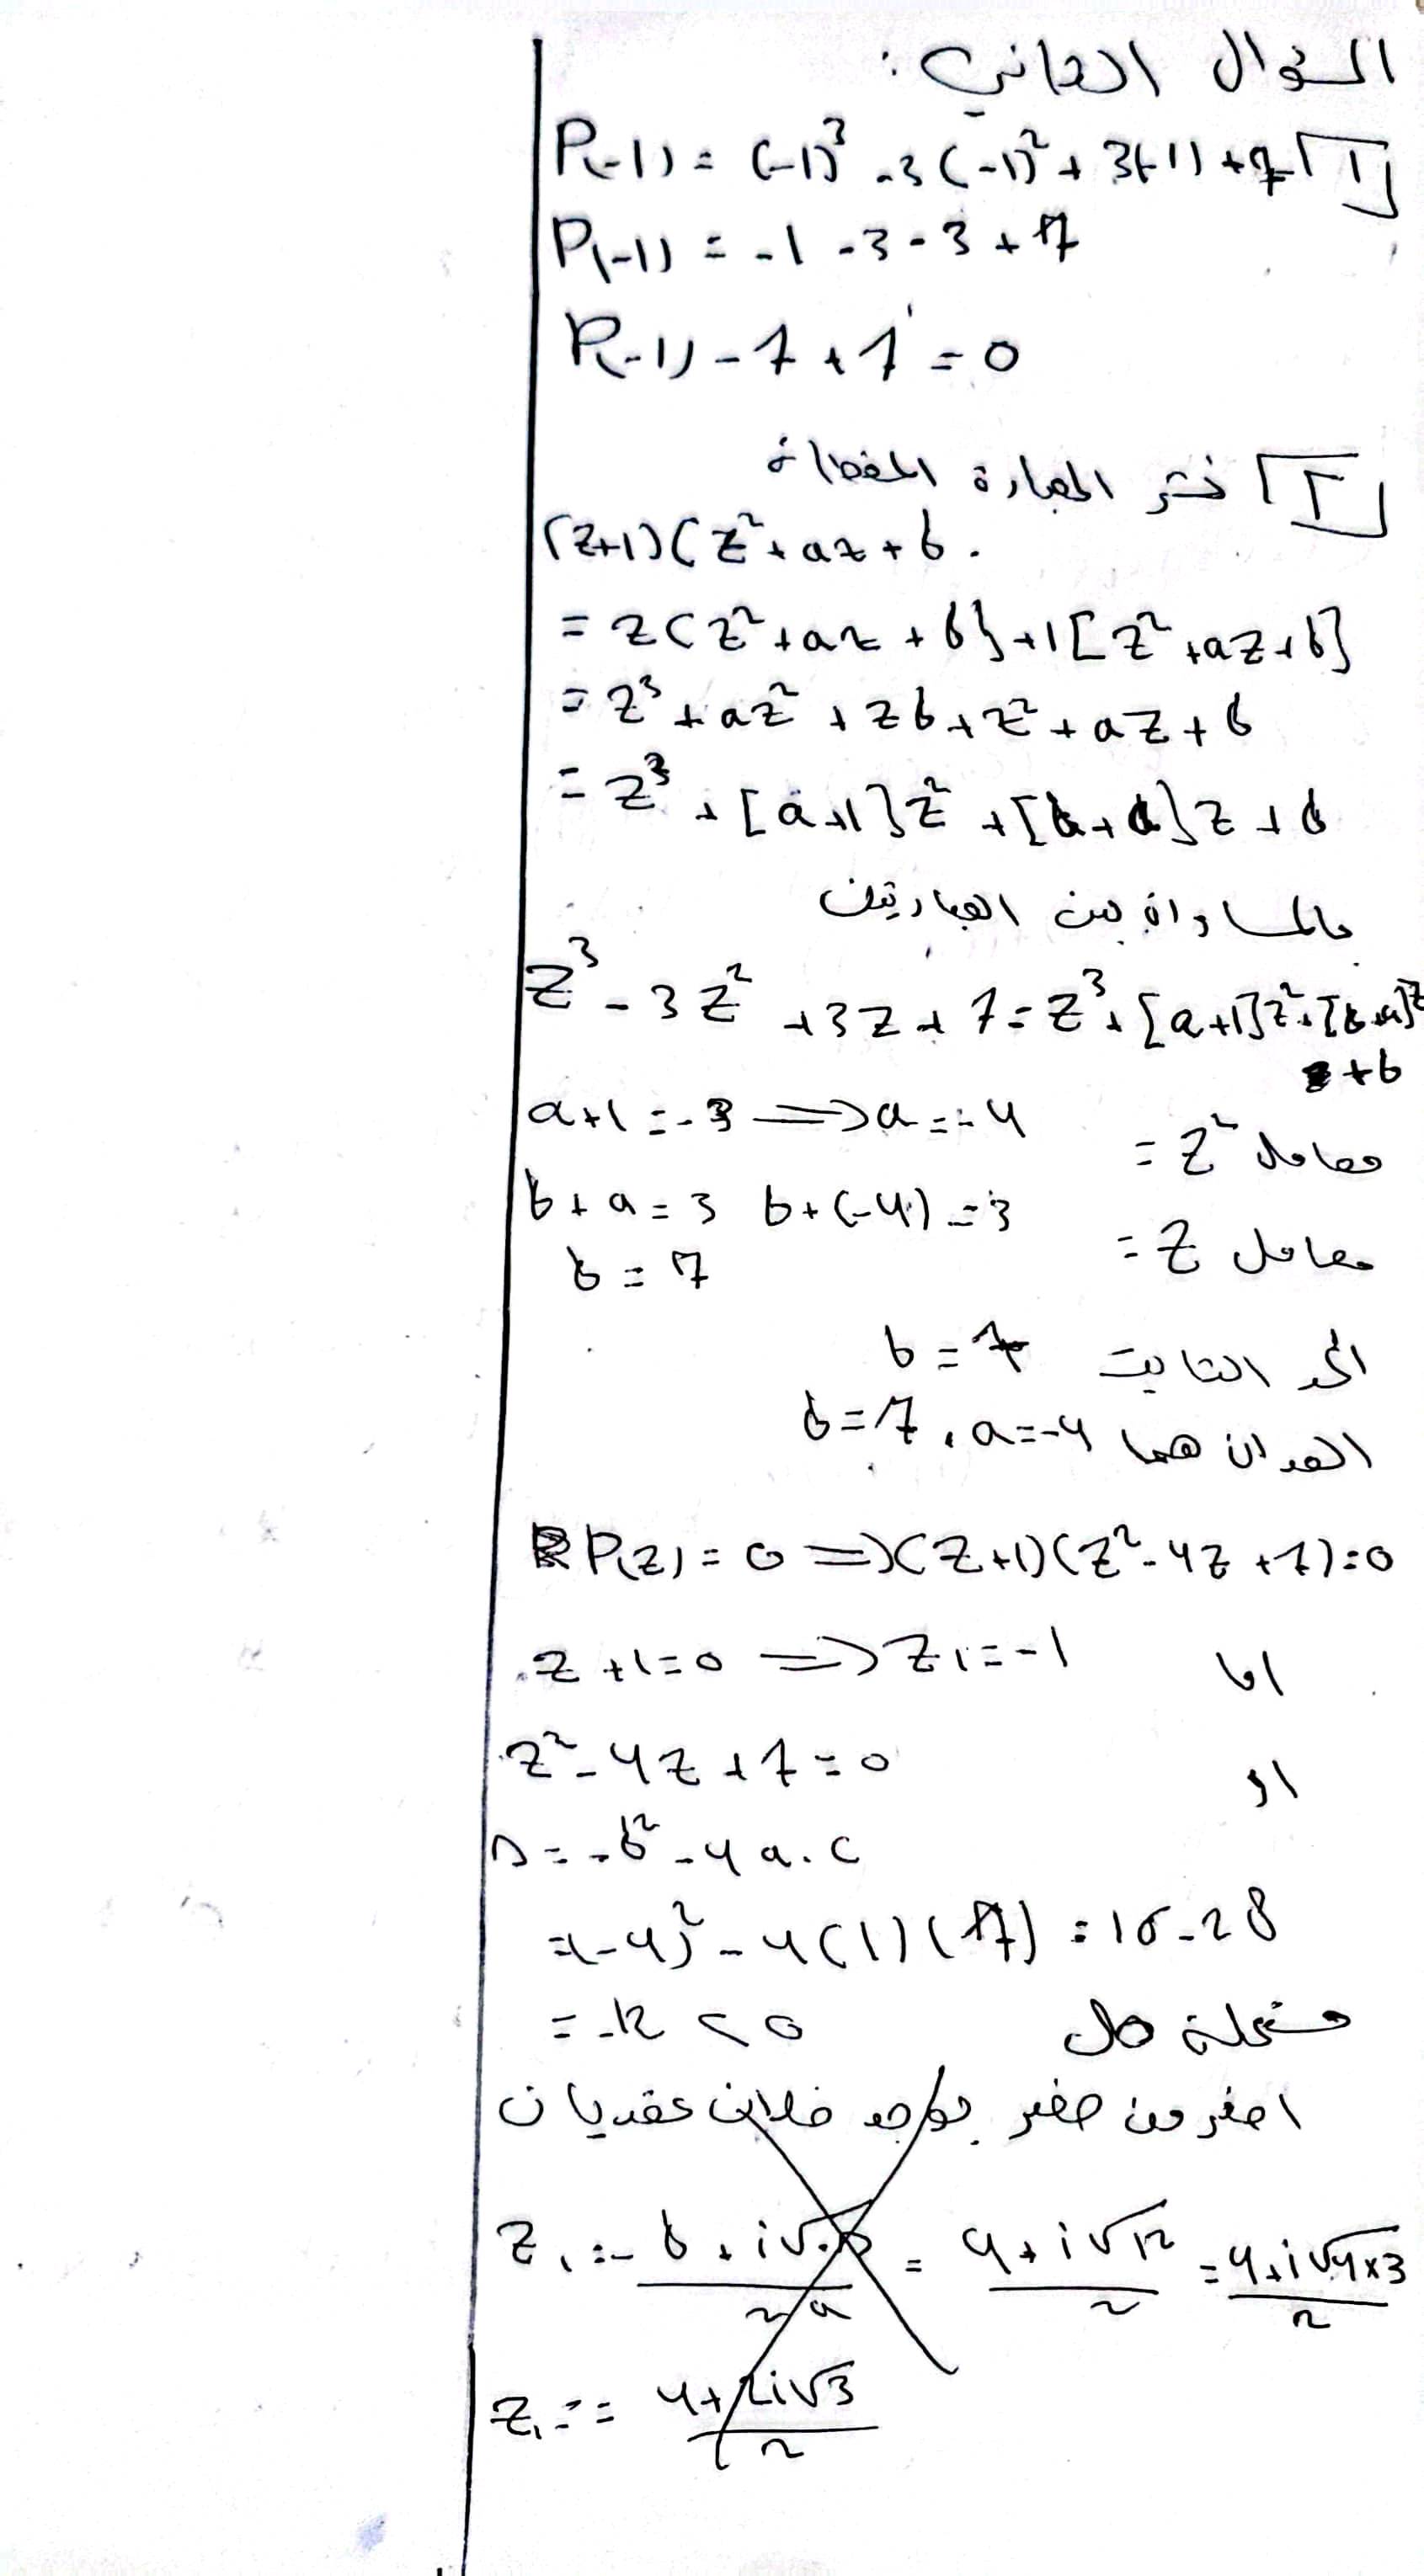 السؤال الثاني:
1 P(-1) = (-1)³ - 3(-1)² + 3(-1) + 7
P(-1) = -1 - 3 - 3 + 7
P(-1) - 7 + 7 = 0
2 ننشر العبارة المعطاة
(z+1)(z² + az + b.
= z(z² + az + b] + 1[z² + az + b]
= z³ + az² + zb + z² + az + b
= z³ + [a+1]z² + [b+a]z + b
بالمساواة بين العبارتين
z³ - 3z² + 3z + 7 = z³ + [a+1]z² + [b+a]z
+ b
a+1 = -3 ⟹ a = -4 معامل z² =
b + a = 3 b + (-4) = 3
معامل z =
b = 7
الحد الثابت b = 7
العددان هما a = -4 , b = 7
P(z) = 0 ⟹ (z+1)(z² - 4z + 7) = 0
اما z + 1 = 0 ⟹ z₁ = -1
او z² - 4z + 7 = 0
Δ = -b² - 4a.c
= (-4)² - 4(1)(7) = 16 - 28
= -12 < 0
اصغر من صفر يوجد عقديان
z₁ = -b + i√-Δ / 2a = 4 + i√12 / 2 = 4 + i√4×3 / 2
z₁ = = 4 + 2i√3 / 2